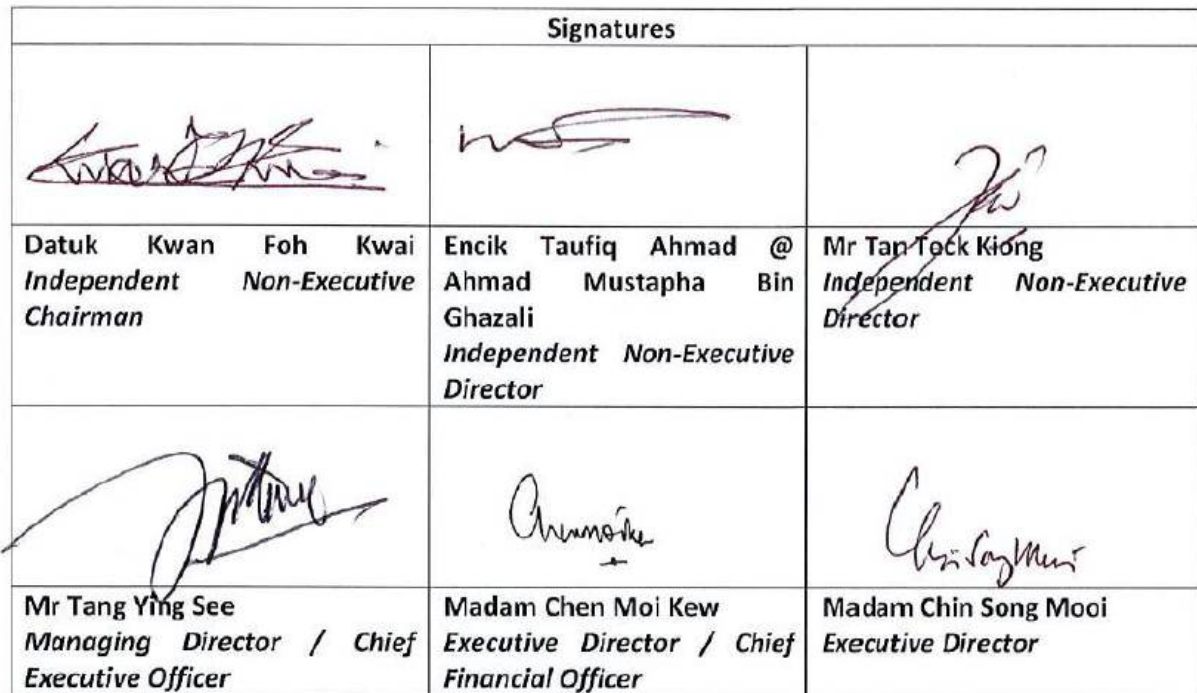 Signatures
Datuk Kwan Foh Kwai
Independent Non-Executive
Chairman
Encik Taufiq Ahmad @
Ahmad Mustapha Bin
Ghazali
Independent Non-Executive
Director
Mr Tan Tock Kiong
Independent Non-Executive
Director
Mr Tang Ying See
Managing Director / Chief
Executive Officer
Madam Chen Moi Kew
Executive Director / Chief
Financial Officer
Madam Chin Song Mooi
Executive Director